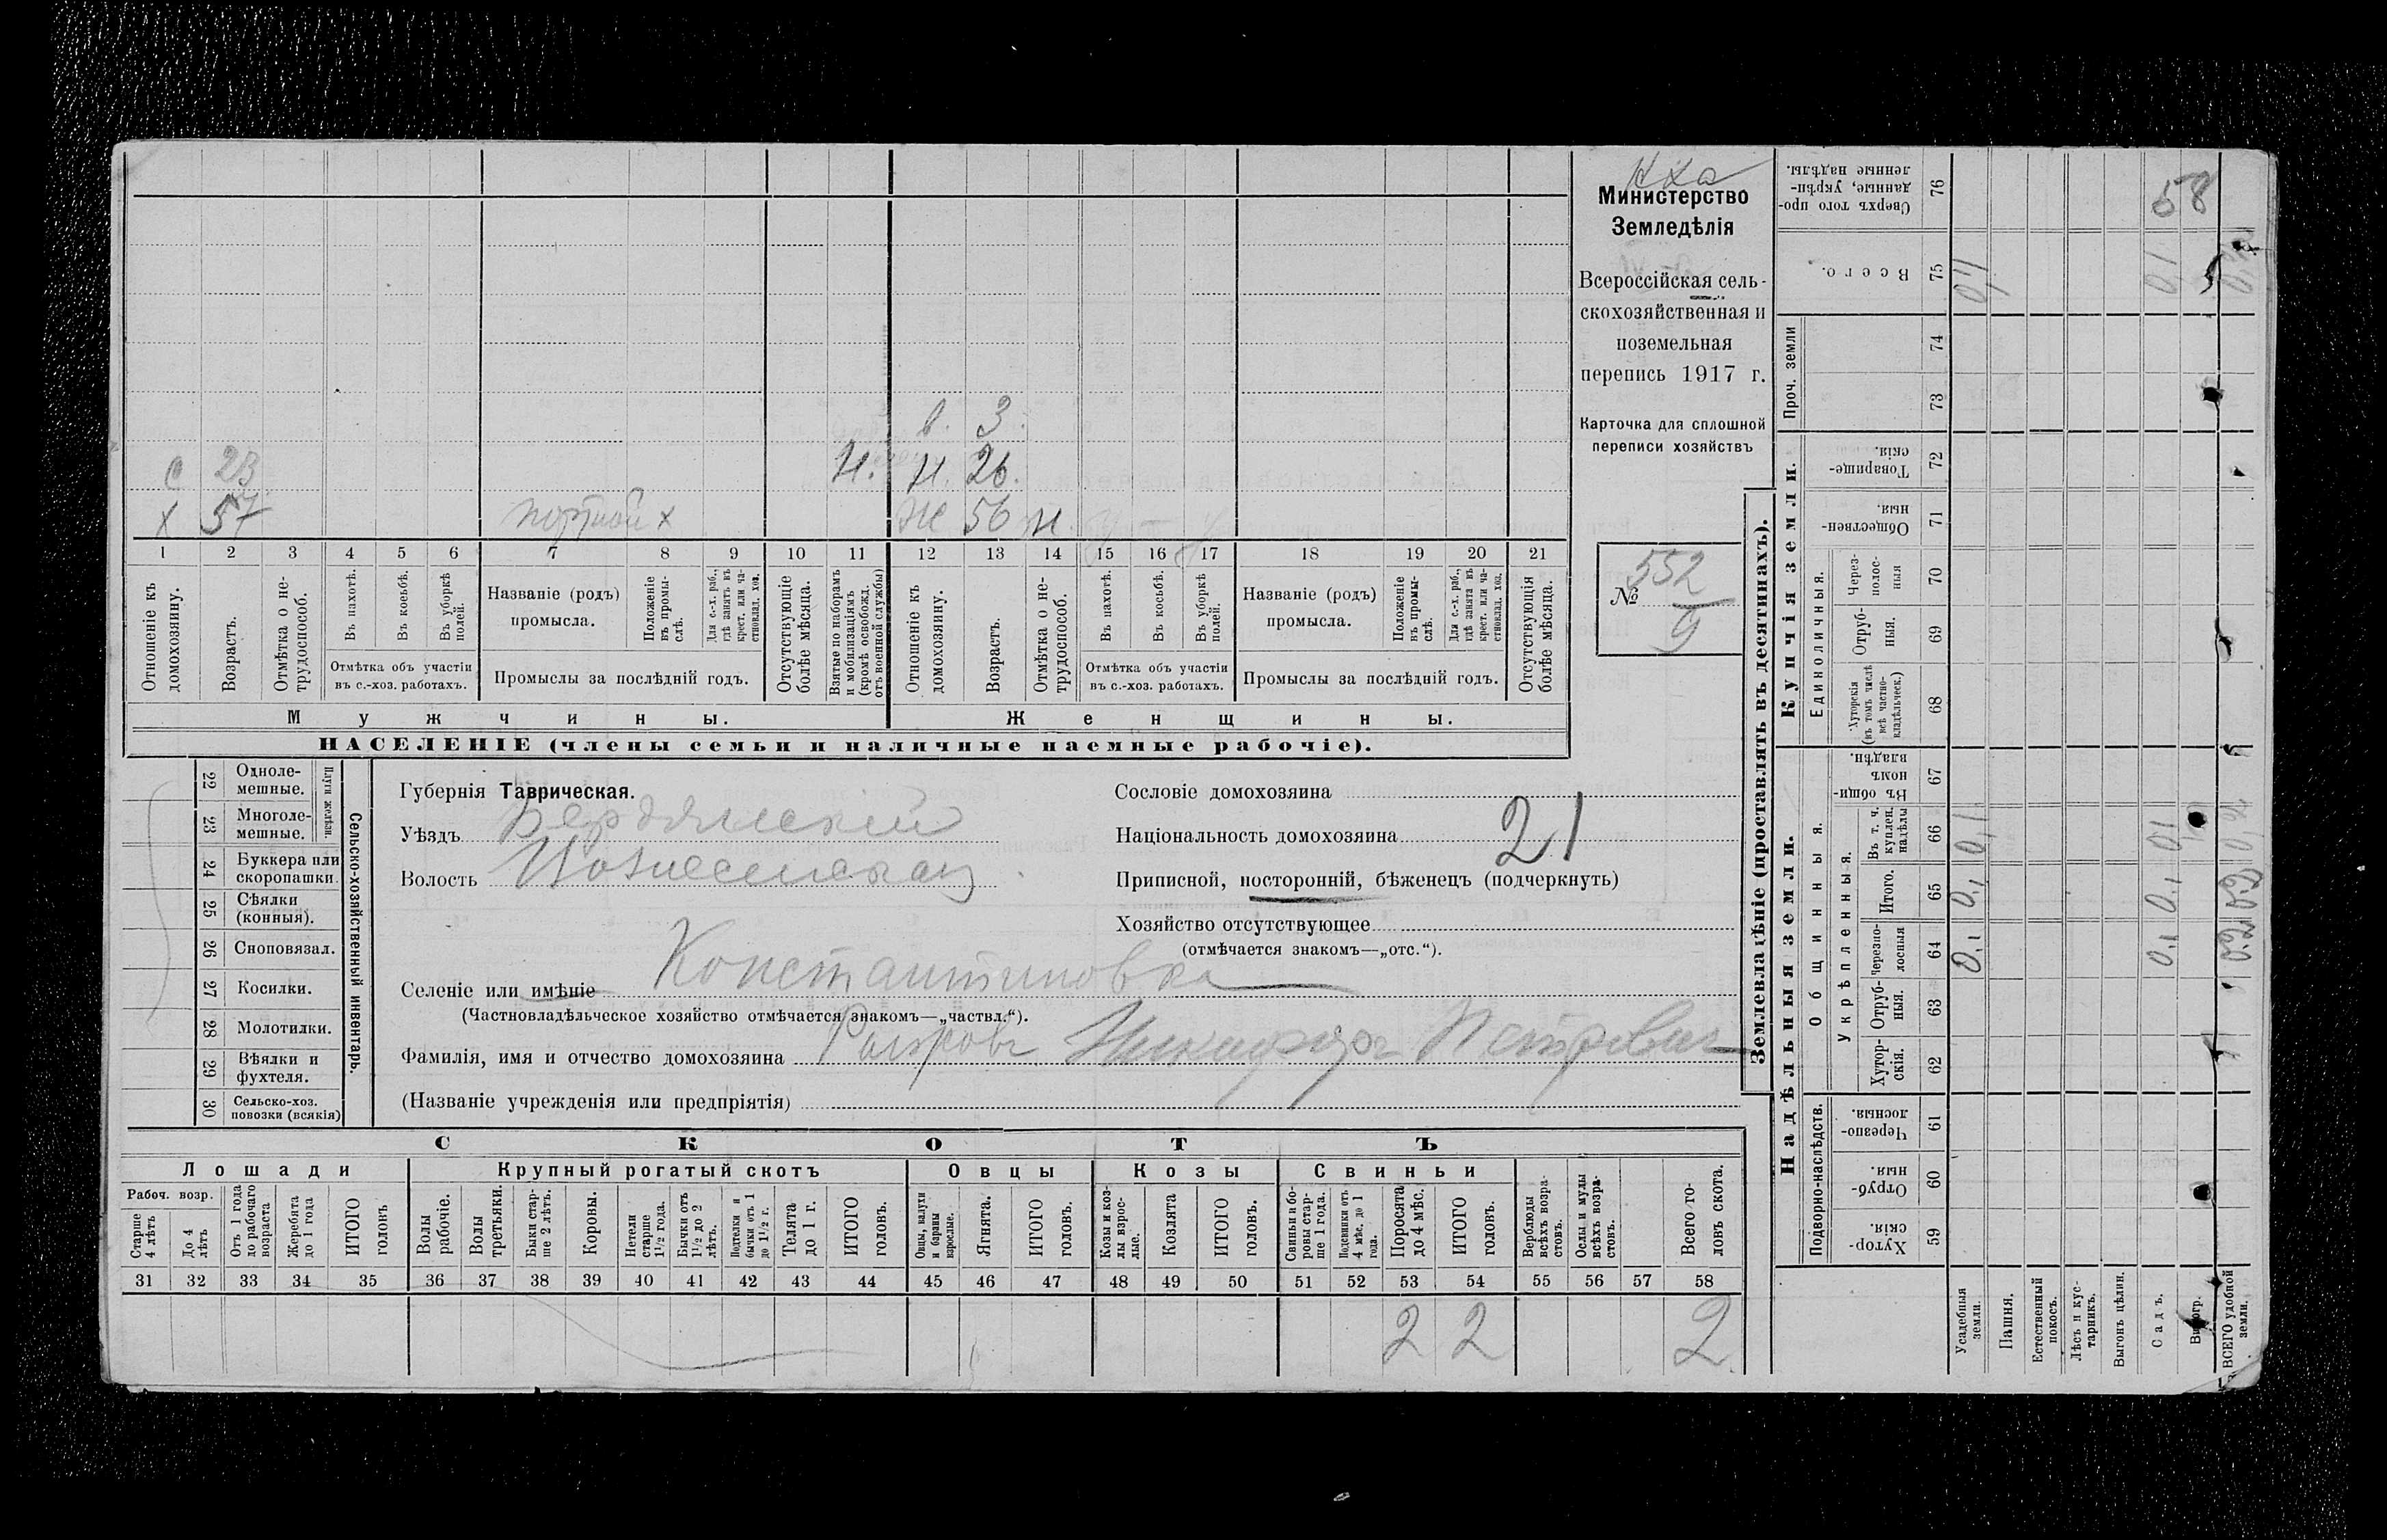 Министерство
Земледѣлія
Всероссійская сель-
скохозяйственная и
поземельная
перепись 1917 г.
Карточка для сплошной
переписи хозяйствъ
№ 552
в. 3.
с 23
Н. Н. 26.
х 57 портной х
Ж 56 н.
1 2 3 4 5 6 7 8 9 10 11 12 13 14 15 16 17 18 19 20 21
Отношеніе къ домохозяину.
Возрастъ.
Отмѣтка о не-трудоспособ.
Въ пахотѣ.
Въ косьбѣ.
Въ уборкѣ полей.
Отмѣтка объ участіи
въ с.-хоз. работахъ.
Названіе (родъ)
промысла.
Положеніе въ промы-слѣ.
Для с.-х. раб., гдѣ занятъ въ крест. или ча-стновлад. хоз.
Промыслы за послѣдній годъ.
Отсутствующіе болѣе мѣсяца.
Взятые по наборамъ и мобилизаціямъ (кромѣ освобожд. отъ военной службы)
Отношеніе къ домохозяину.
Возрастъ.
Отмѣтка о не-трудоспособ.
Въ пахотѣ.
Въ косьбѣ.
Въ уборкѣ полей.
Отмѣтка объ участіи
въ с.-хоз. работахъ.
Названіе (родъ)
промысла.
Положеніе въ промы-слѣ.
Для с.-х. раб., гдѣ занята въ крест. или ча-стновлад. хоз.
Промыслы за послѣдній годъ.
Отсутствующія болѣе мѣсяца.
Мужчины.
Женщины.
НАСЕЛЕНІЕ (члены семьи и наличные наемные рабочіе).
Сельско-хозяйственный инвентарь.
Плуги желѣзн.
22 Одноле-мешные.
23 Многоле-мешные.
24 Буккера или скоропашки.
25 Сѣялки (конныя).
26 Сноповязал.
27 Косилки.
28 Молотилки.
29 Вѣялки и фухтеля.
30 Сельско-хоз. повозки (всякія)
Губернія Таврическая.
Уѣздъ Бердянскій
Волость
Селеніе или имѣніе Константиновка
(Частновладѣльческое хозяйство отмѣчается знакомъ—„частвл.“).
Фамилія, имя и отчество домохозяина Никифоръ Петровичъ
(Названіе учрежденія или предпріятія)
Сословіе домохозяина
Національность домохозяина 21
Приписной, посторонній, бѣженецъ (подчеркнуть)
Хозяйство отсутствующее
(отмѣчается знакомъ—„отс.“).
СКОТЪ
Лошади
Крупный рогатый скотъ
Овцы
Козы
Свиньи
Рабоч. возр.
Старше 4 лѣтъ
До 4 лѣтъ
Отъ 1 года до рабочаго возраста
Жеребята до 1 года
ИТОГО головъ
Волы рабочіе.
Волы третьяки.
Быки стар-ше 2 лѣтъ.
Коровы.
Нетели старше 1½ года.
Бычки отъ 1½ до 2 лѣтъ.
Подтелки и бычки отъ 1 до 1½ г.
Телята до 1 г.
ИТОГО головъ.
Овцы, валухи и бараны взрослые.
Ягнята.
ИТОГО головъ.
Козы и коз-лы взрос-лые.
Козлята
ИТОГО головъ.
Свиньи и бо-ровы стар-ше 1 года.
Подсвинки отъ 4 мѣс. до 1 года.
Поросята до 4 мѣс.
ИТОГО головъ.
Верблюды всѣхъ возра-стовъ.
Ослы и мулы всѣхъ возра-стовъ.
Всего го-ловъ скота.
31 32 33 34 35 36 37 38 39 40 41 42 43 44 45 46 47 48 49 50 51 52 53 54 55 56 57 58
2 2 2
Землевладѣніе (проставлять въ десятинахъ).
Надѣльныя земли.
Купчія земли.
Проч. земли
Подворно-наслѣдств.
Общинныя.
Укрѣпленныя.
Единоличныя.
Хутор-скія. 59
Отруб-ныя. 60
Черезпо-лосныя. 61
Хутор-скія. 62
Отруб-ныя. 63
Черезпо-лосныя 64
Итого. 65
Въ т. ч. куплен. надѣлы 66
Въ общин-номъ владѣн. 67
Хуторскія (въ томъ числѣ всѣ частно-владѣльческ.) 68
Отруб-ныя. 69
Через-полос-ныя 70
Обществен-ныя. 71
Товарище-скія. 72
73
74
Всего. 75
Сверхъ того про-данные, укрѣп-ленные надѣлы. 76
Усадебныя земли. 0,1 0,1 0,1 0,1
Пашня.
Естественный покосъ.
Лѣсъ и кус-тарникъ.
Выгонъ цѣлин.
Садъ. 0,1 0,1 0,1 0,1
58
Виногр.
ВСЕГО удобной земли. 0,2 0,2 0,2